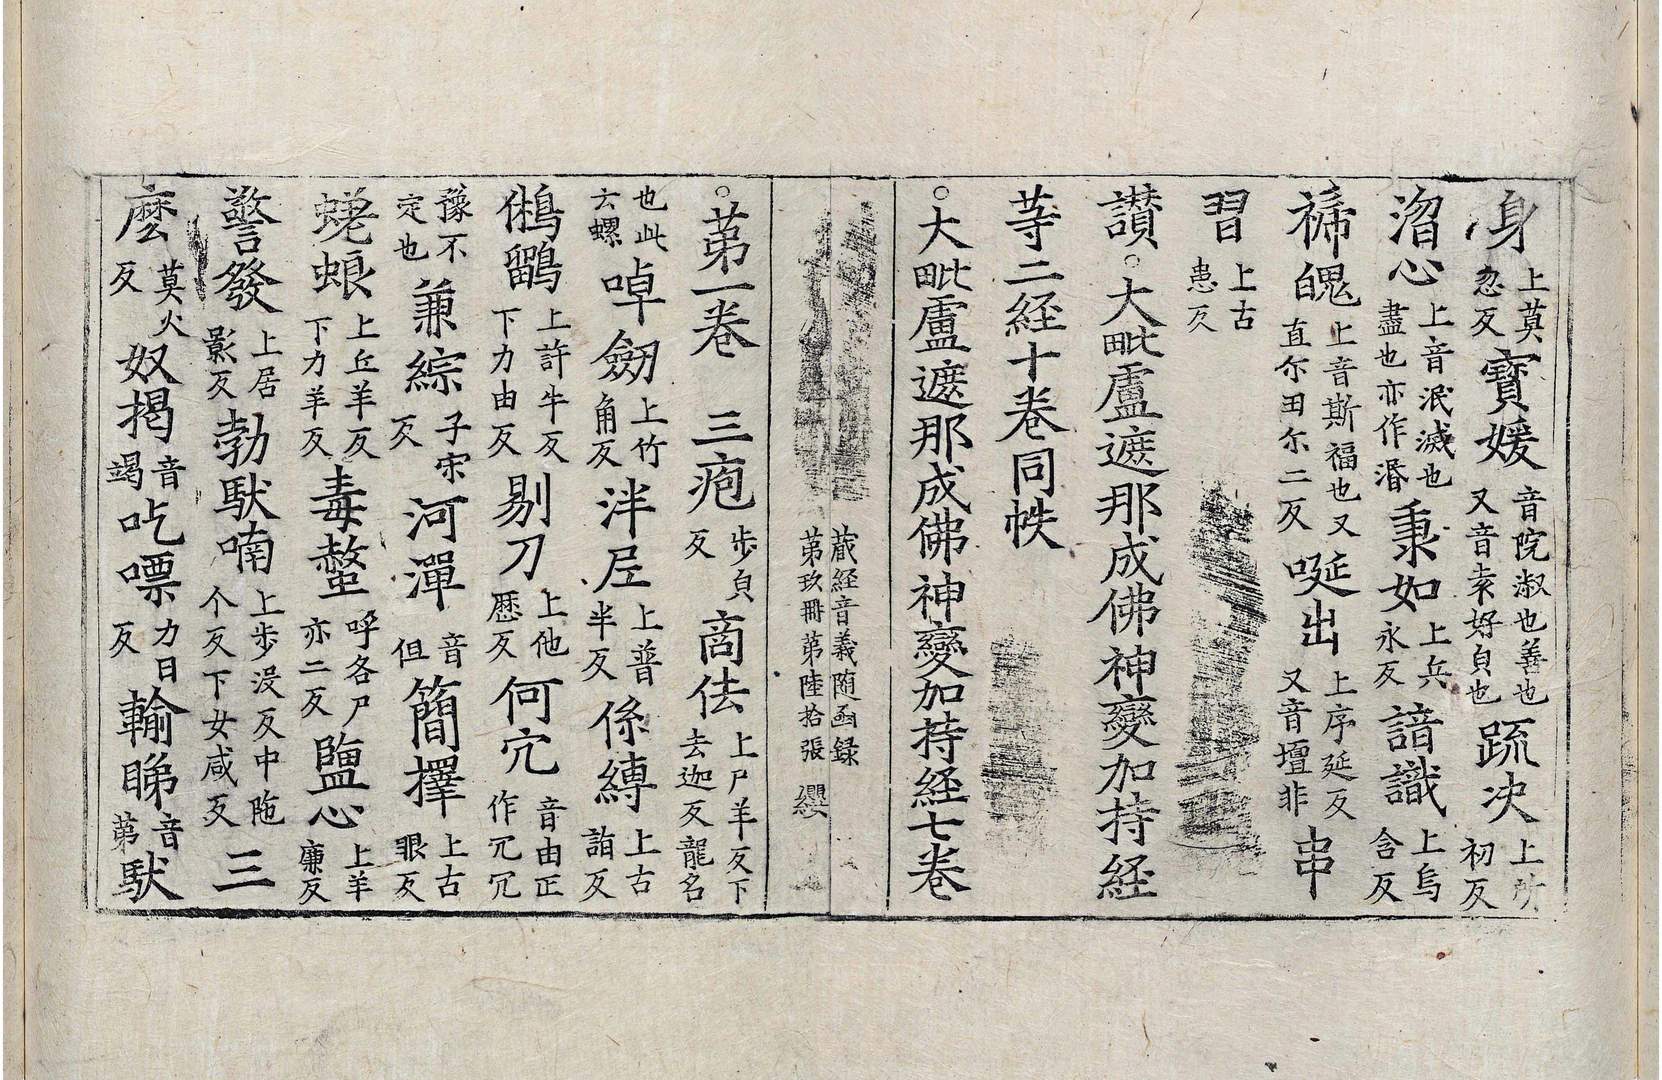 身上莫忽反寶媛音院淑也善也又音袁好皃也疏决上所初反
㴘心上音泯滅也盡也亦作湣秉如上兵永反諳識上烏含反
禠䰟上音斯福也又直尒田尒二反唌出上序延反又音壇非串
習上古患反
讃○大毗盧遮那成佛神變加持經
等二經十卷同帙
○大毗盧遮那成佛神變加持經七卷
藏經音義随函録
第玖冊第陸拾張 纓
○第一卷 三疱步皃反商佉上尸羊反下去迦反龍名
也此云螺㖡劒上竹角反泮𡱝上普半反係縛上古詣反
鵂鶹上許牛反下力由反剔刀上他歷反何宂音由正作冗冗
豫不定也兼綜子宋反河潬音但簡擇上古眼反
蜣蜋上丘羊反下力羊反毒螫呼各尸亦二反鹽心上羊廉反
警發上居影反勃馱喃上步没反中陁个反下女咸反三
麽莫火反奴揭音竭吃㗚力日反輸睇音第馱